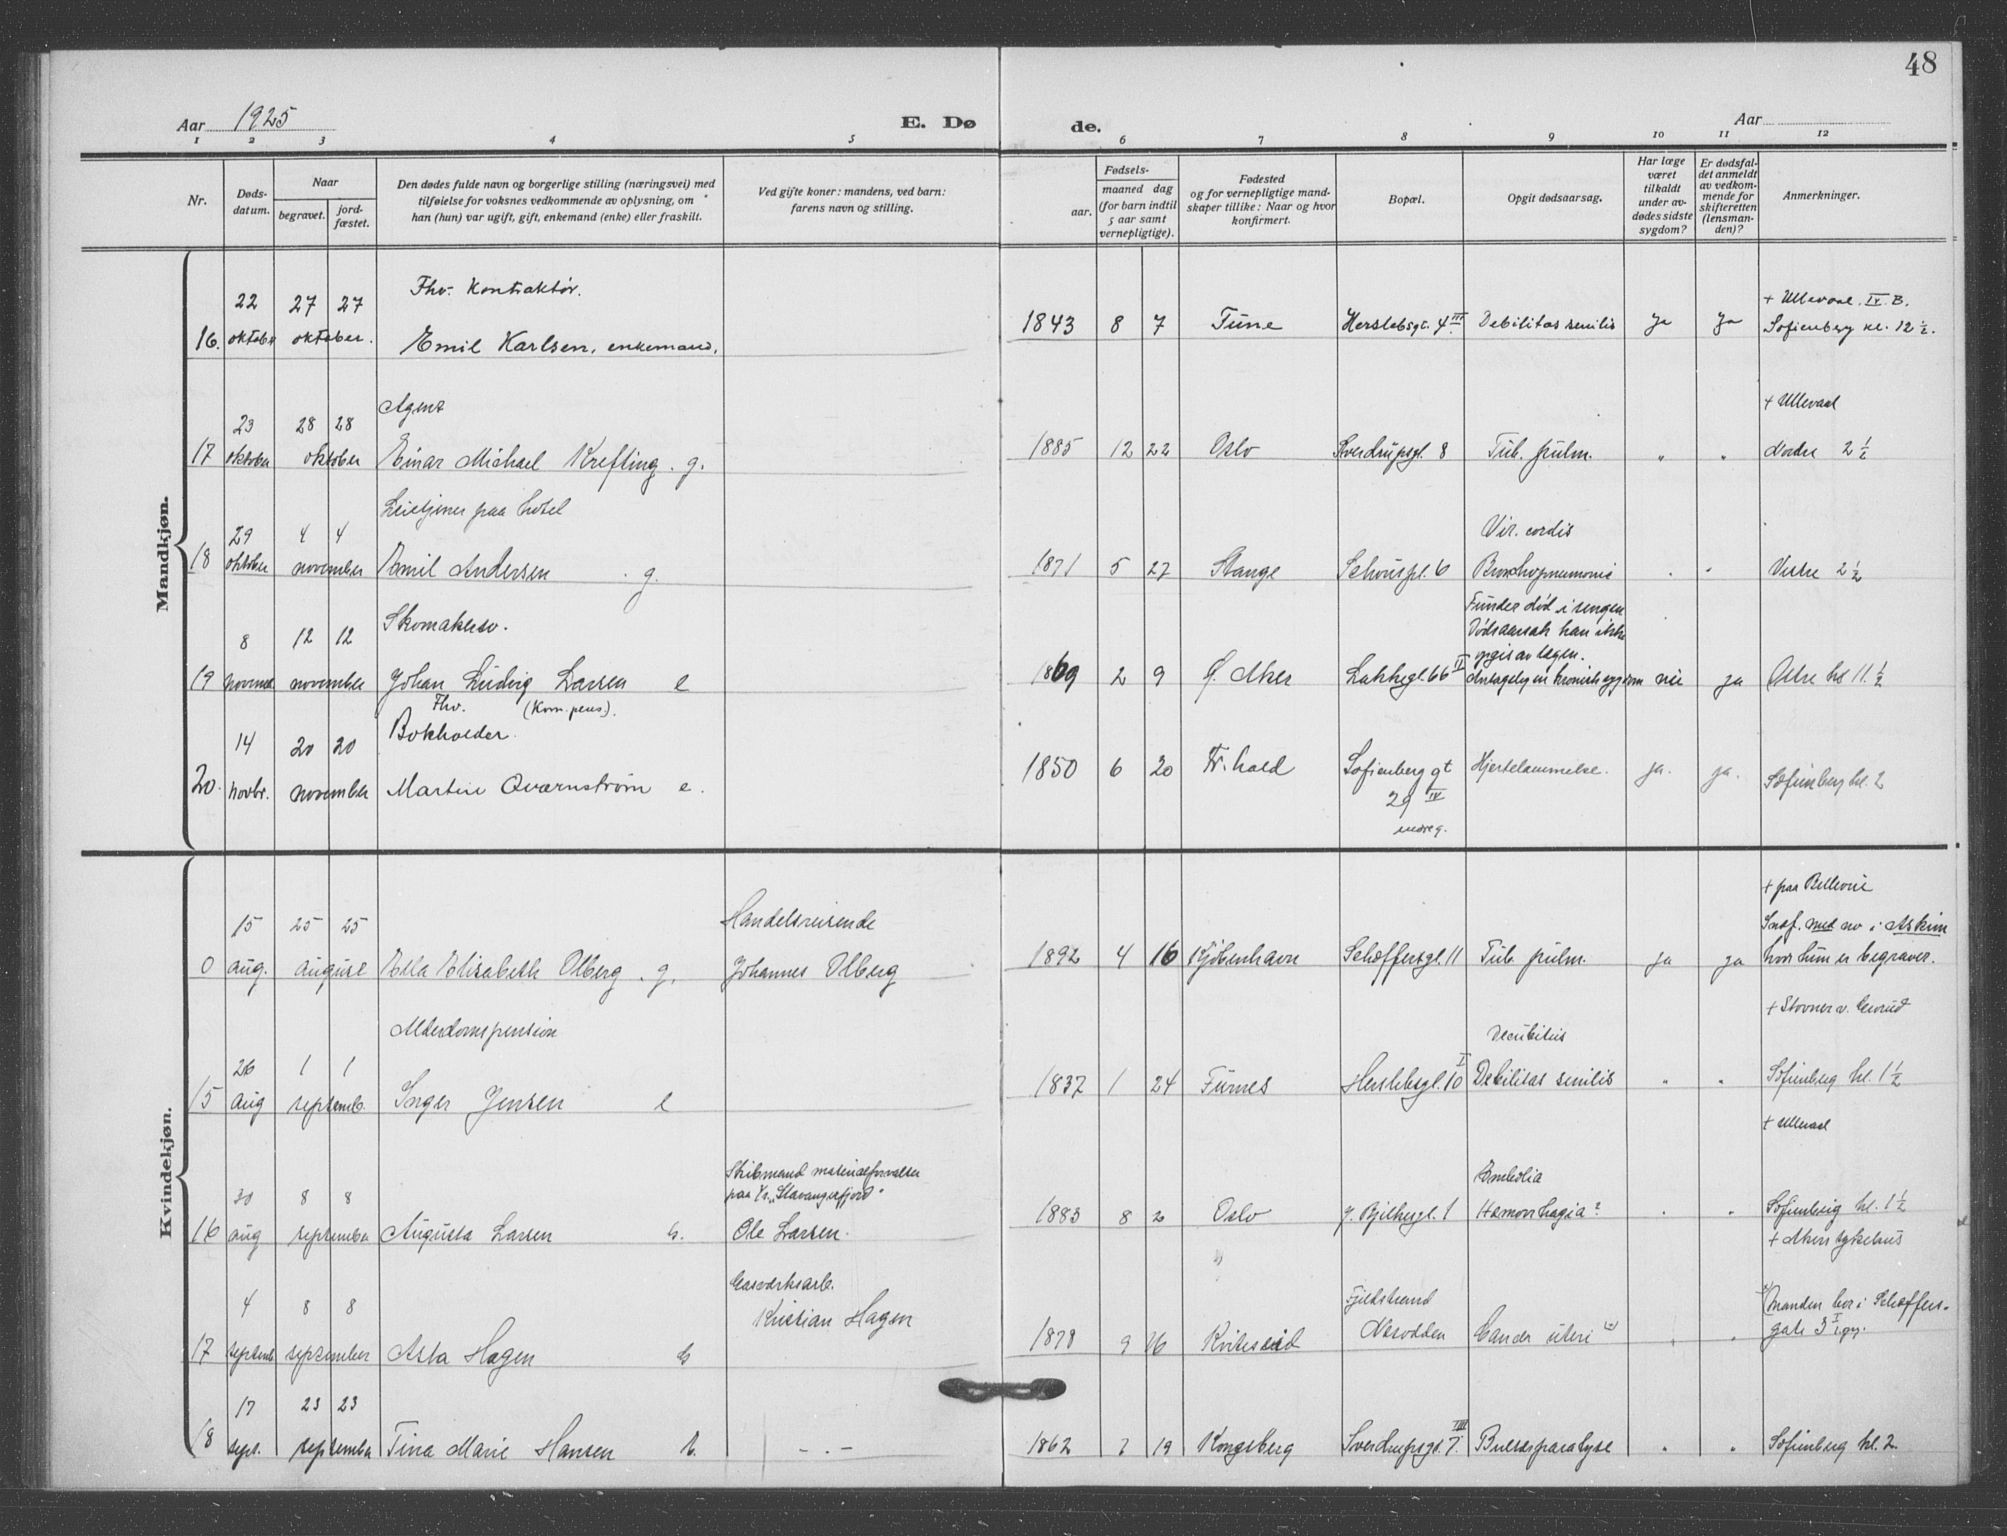 48
Aar 1925
E. Dø
de.
Aar
1 2 3 4 5 6 7 8 9 10 11 12
Nr.
Døds-
datum.
Naar
begravet.
jord-
fæstet.
Den dødes fulde navn og borgerlige stilling (næringsvei) med
tilføielse for voksnes vedkommende av oplysning, om
han (hun) var ugift, gift, enkemand (enke) eller fraskilt.
Ved gifte koner: mandens, ved barn:
farens navn og stilling.
Fødsels-
aar.
maaned dag
(for barn indtil
5 aar samt
vernepligtige).
Fødested
og for vernepligtige mand-
skaper tillike: Naar og hvor
konfirmert.
Bopæl.
Opgit dødsaarsag.
Har læge
været
tilkaldt
under av-
dødes sidste
sygdom?
Er dødsfal-
det anmeldt
av vedkom-
mende for
skifteretten
(lensman-
den)?
Anmerkninger.
Mandkjøn.
Fhv. Kontraktør.
22 27 27
+ Ullevaal. IV. B.
16. oktober oktober. Emil Karlsen, enkemand, 1843 8 7 Tune Herslebsgt. 4 III Debilitas senilis ja ja Sofienberg kl. 12 ½.
Agent
23 28 28
+ Ullevaal
17 oktober oktober Einar Michael Krefting. g. 1885 12 22 Oslo Sverdrupsgt. 8 Tub. pulm. " " Nordre 2 ½
paa hotel
29 4 4
Vit. cordis
18 oktober november Emil Andersen . g. 1871 5 27 Stange Schouspl. 6 Bronchopneumoni " " Vestre 2 ½
Skomakersv.
8 12 12
Funden død i sengen
Dødsaarsak kan ikke
opgis av lægen.
19 novemb. november Johan Ludvig Larsen e 1869 2 9 Ø. Aker Lakkegt. 66 II en kronisk sygdom nei ja Østre kl 11 ½
Fhv. (Kom. pens.).
Bokholder.
14 20 20
20. novbr. november Martin Qværnstrøm e. 1850 6 20 Fr.hald Sofienberg gt Hjertelammelse. ja. ja. Sofienberg kl. 2
29 IV
Kvindekjøn.
+ paa Bellevue
15 25 25
Handelsreisende
i Askim
0 aug. august Ella Elisabeth Olberg . g. Johannes Olberg 1892 4 16 Kjøbenhavn Schæffersgt. 11 Tub. pulm. ja ja hvor hun er begravet.
Alderdomspension
Decubitus
26 1 1
15 aug septemb. Inger Jensen e 1837 1 24 Furnes Herslebsgt. 10 I Debilitas senilis " " Sofienberg kl. 1 ½
+ Ullevaal
materialforvalter
paa "Stavangerfjord"
Embolia
30 8 8
16 aug september Augusta Larsen g. Ole Larsen. 1883 8 2 Oslo g. 1 Hæmorrhagia? " " Sofienberg kl. 1 ½
+ Aker sykehus
Gasverksarb.
4 8 8
Kristian Hagen
Fjeldstrand
x) Manden bor i Schæffers-
17 septemb. september Asta Hagen g 1878 9 26 Kviteseid Nesodden Cancer uteri x) " " gate 3 I
17 23 23
18 sept. september Tina Marie Hansen - . - 1862 7 19 Kongsberg Sverdrupsgt. 7 III Bulbærparalyse " " Sofienberg kl. 2